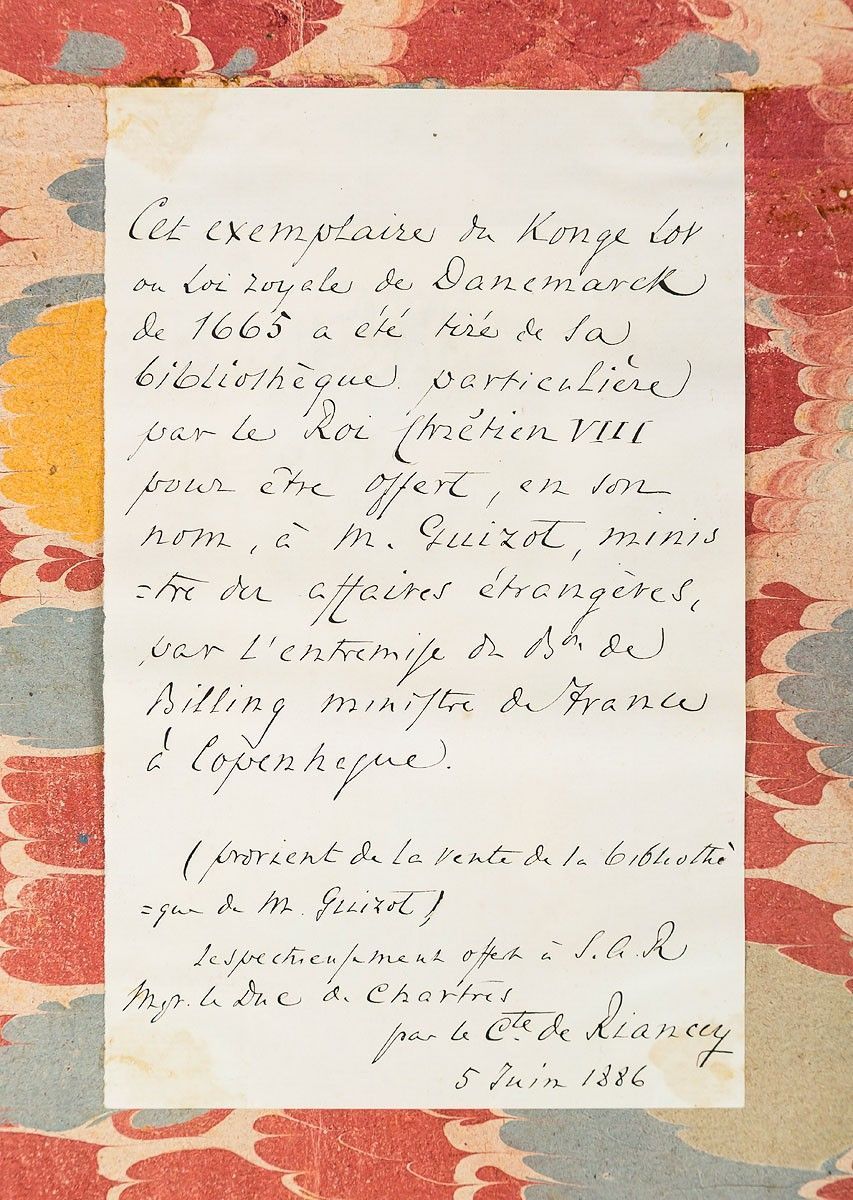 Cet exemplaire du Konge Lov
ou Loi royale de Danemarck
de 1665 a été tiré de sa
bibliothèque particulière
par le Roi Chrétien VIII
pour être offert, en son
nom, à M. Guizot, minis
=tre des affaires étrangères,
par l'entremise du Bon de
Billing ministre de France
à Copenhague.
(provient de la vente de la bibliothè
=que de M. Guizot)
Respectueusement offert à S.A.R
Mgr. le Duc de Chartres
par le Cte. de Riancey
5 Juin 1886